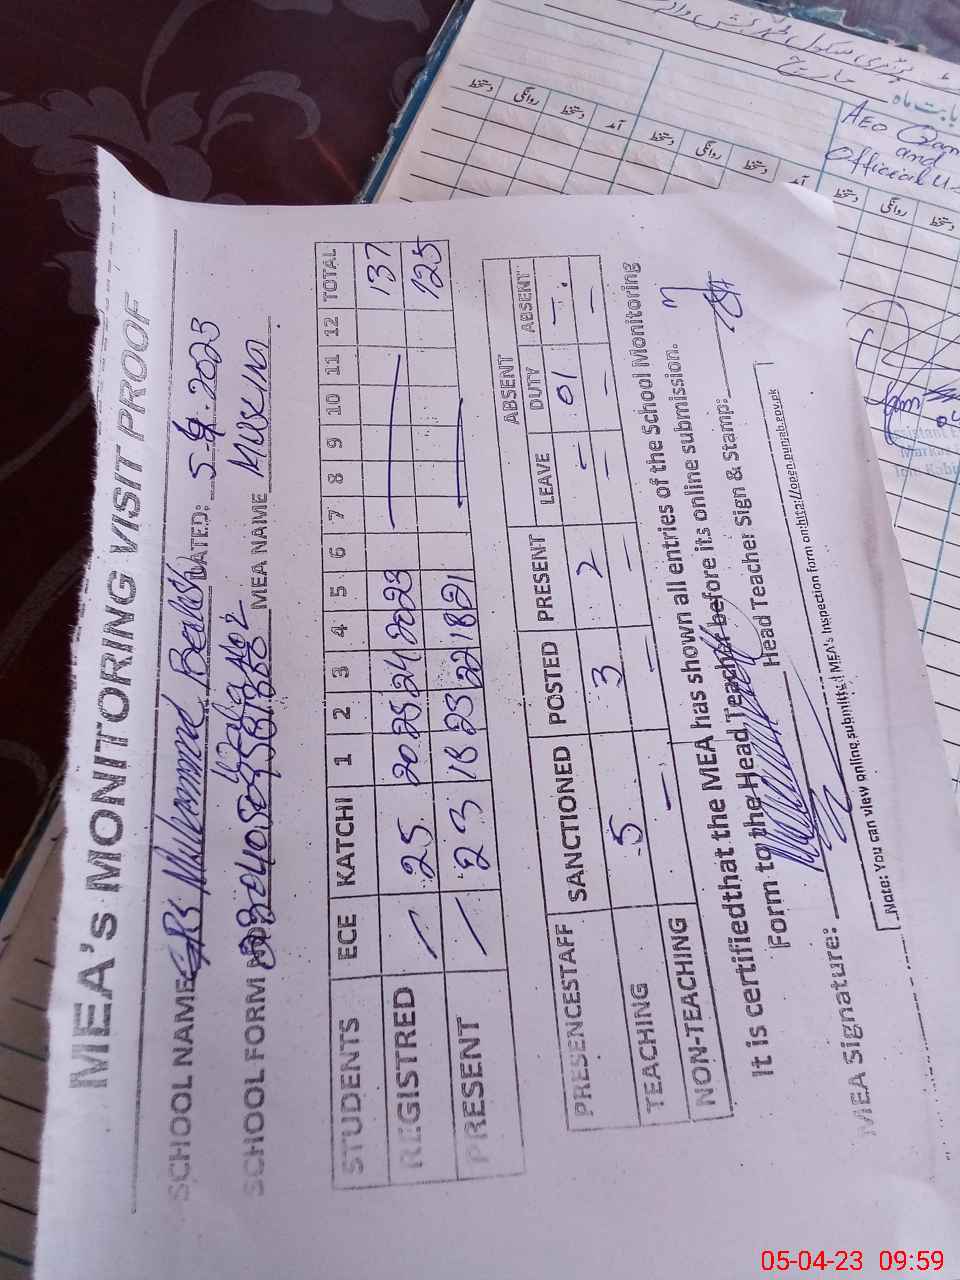 MEA's MONITORING VISIT PROOF
SCHOOL NAME: GPS Muhammad Baksh DATED: 5-4-2023
SCHOOL FORM MEA NAME Mohsin
STUDENTS ECE KATCHI 1 2 3 4 5 6 7 8 9 10 11 12 TOTAL
REGISTRED — 25 20 25 24 20 23 137
PRESENT — 23 18 23 22 18 21 125
PRESENCESTAFF SANCTIONED POSTED PRESENT LEAVE ABSENT DUTY ABSENT
TEACHING 5 3 2 — 01 —
NON-TEACHING — — — — — —
It is certifiedthat the MEA has shown all entries of the School Monitoring
Form to the Head Teacher before its online submission.
Head Teacher Sign & Stamp:
MEA Signature:
Note: You can view online submitted MEA's Inspection form on:
پرائمری سکول
بابت ماہ
آمد دستخط روانگی دستخط
AEO
and
Official
05-04-23 09:59